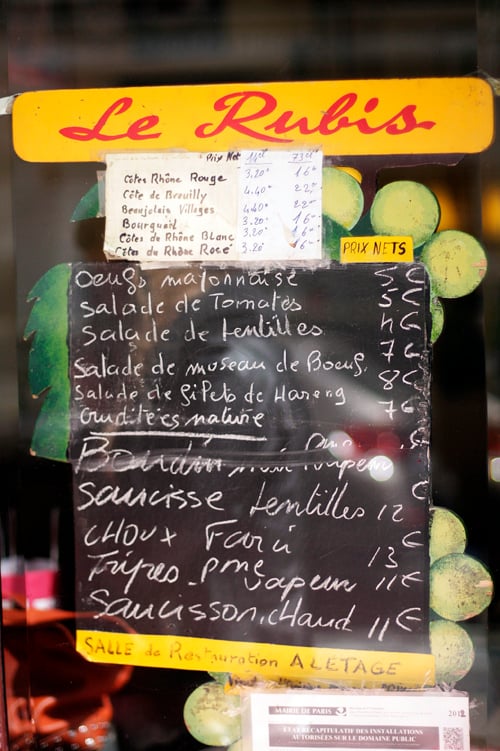 Le Rubis
Prix Net 14cl 73cl
Côtes Rhône Rouge 3.20 16-
Côte de Brouilly 4.40 22-
Beaujolais Villages 4.40 22-
Bourgueil 3.20 16-
Côtes de Rhône Blanc 3.20 16-
Côtes de Rhône Rosé 3.20 16-
PRIX NETS
Oeufs mayonnaise 5€
Salade de Tomates 5€
Salade de Lentilles 4€
Salade de museau de Boeuf 7€
Salade de filets de Hareng 8€
Crudités nature 7€
Boudin noir vapeur
Saucisse Lentilles 12€
CHOUX Farci 13€
Tripes pme vapeur 11€
Saucisson chaud 11€
SALLE de Restauration A LETAGE
MAIRIE DE PARIS
ETAT RÉCAPITULATIF DES INSTALLATIONS
AUTORISÉES SUR LE DOMAINE PUBLIC